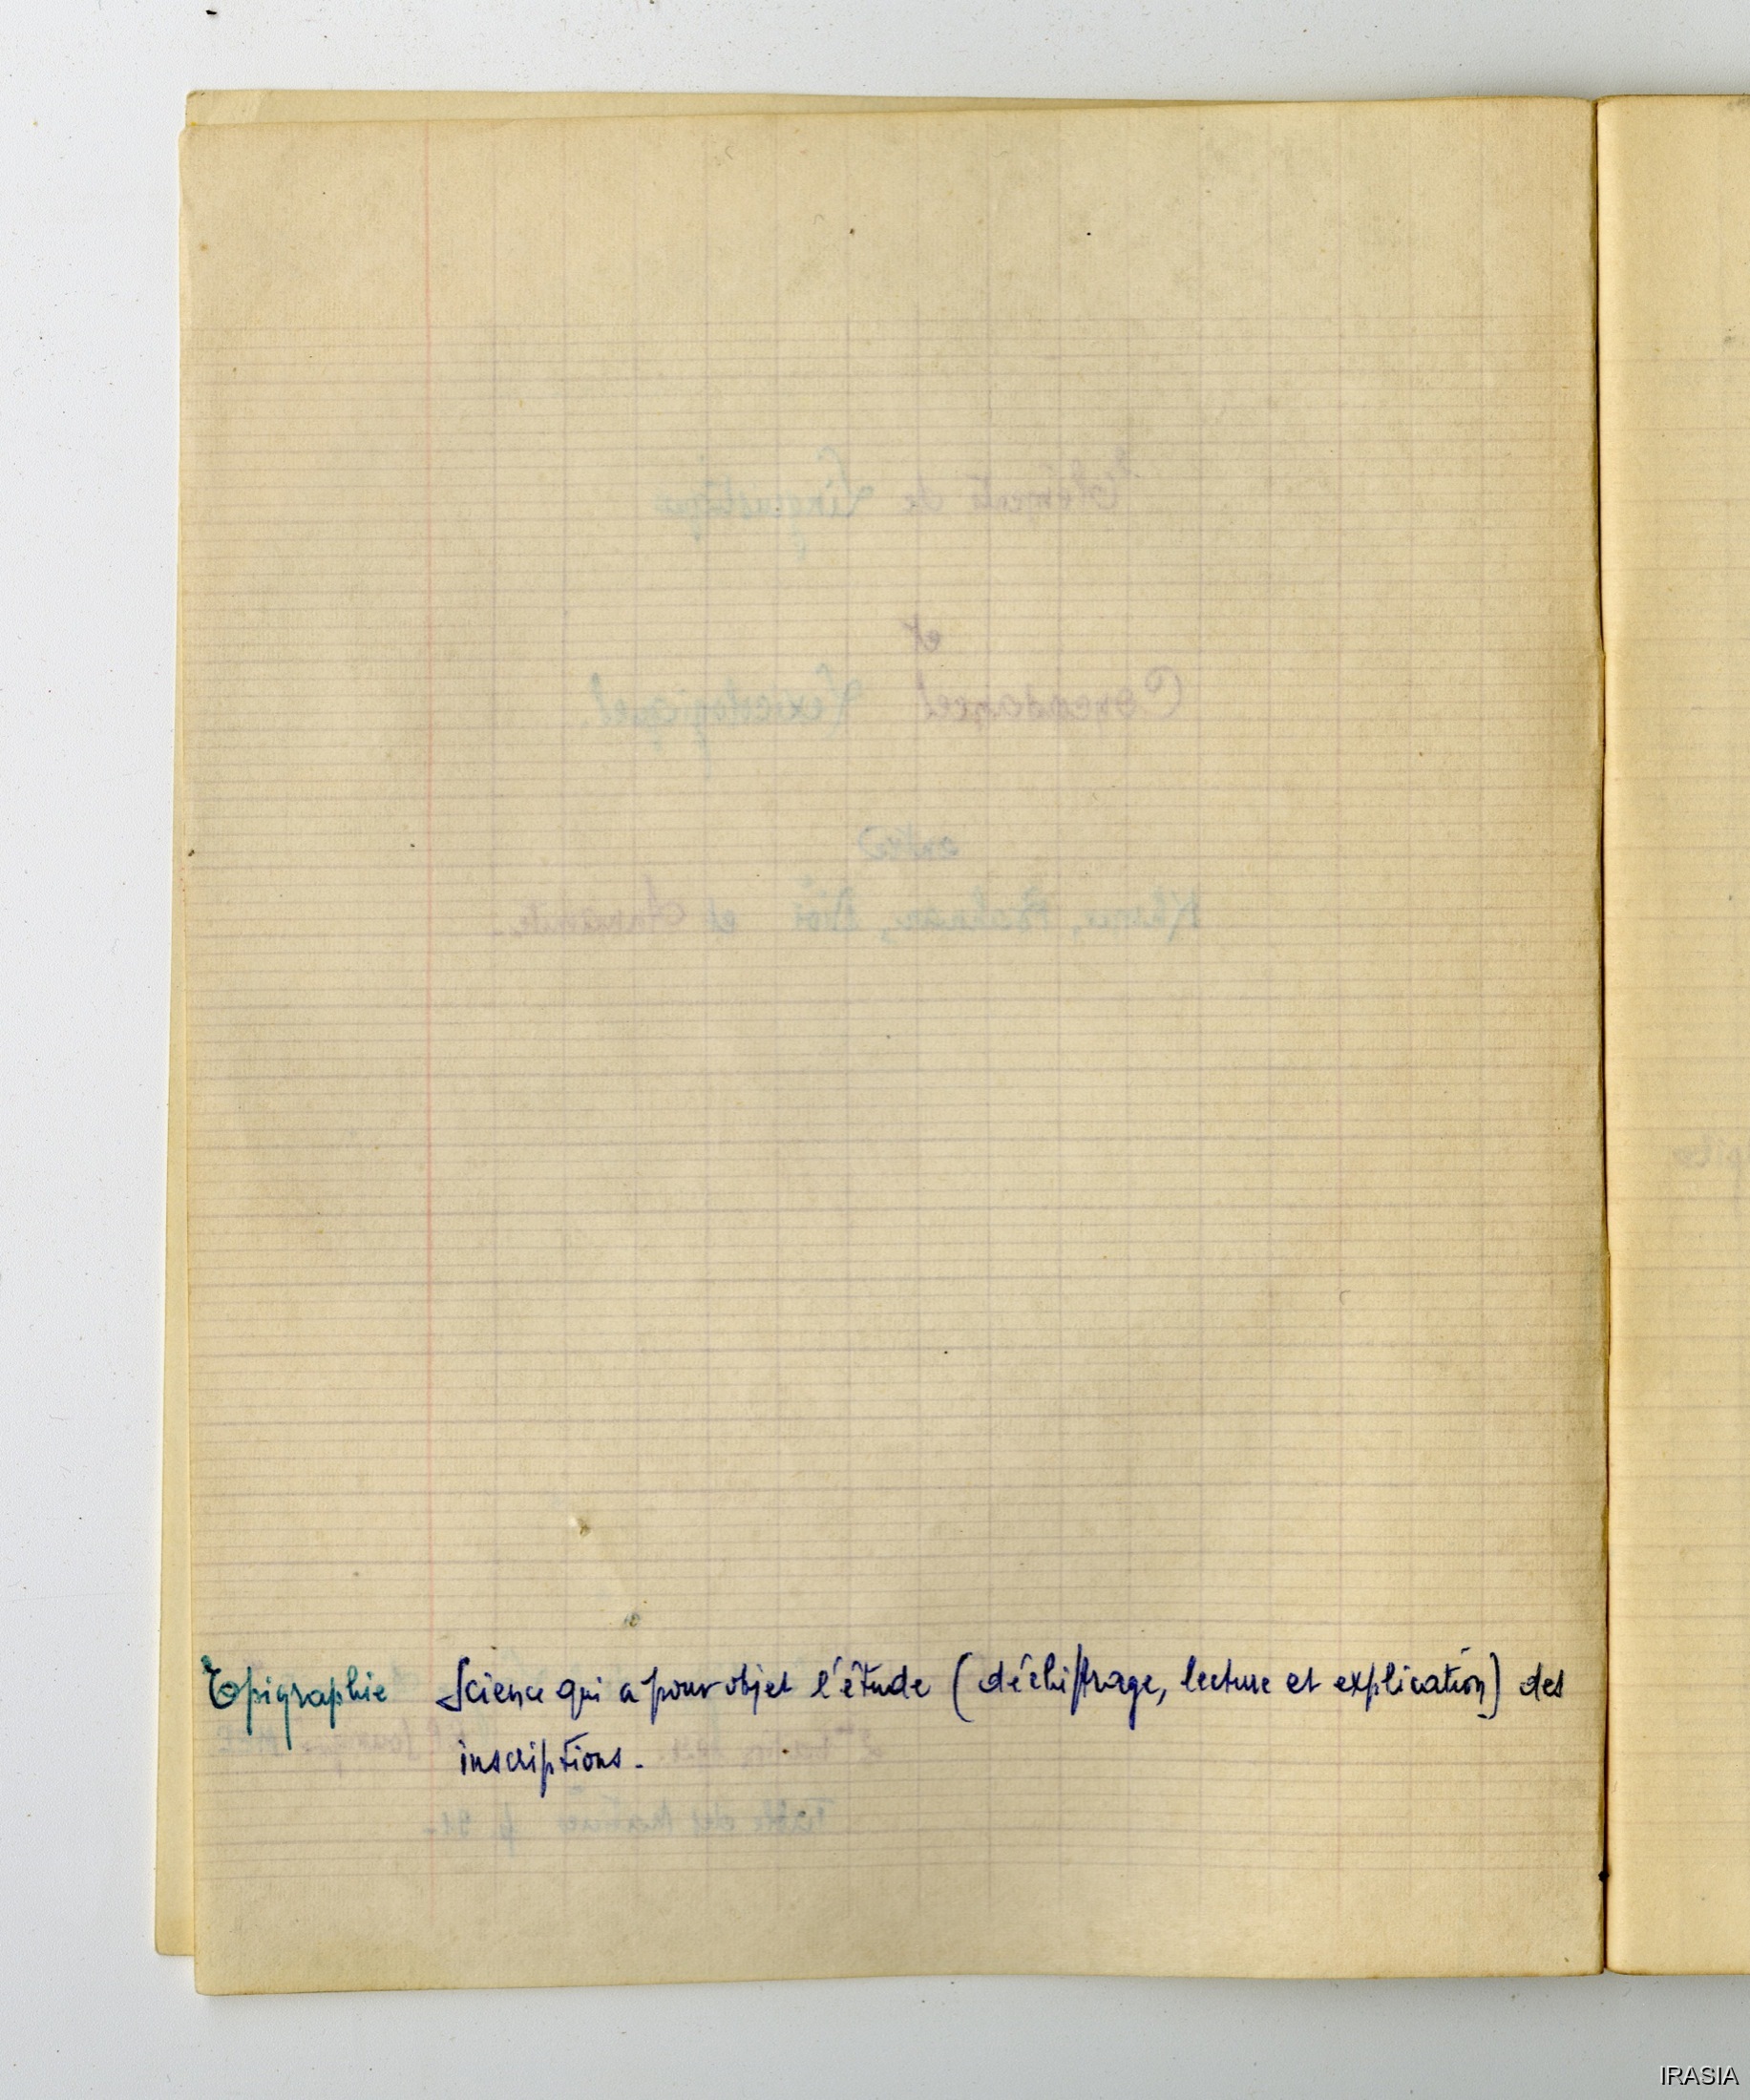 Epigraphie Science qui a pour objet l'étude (déchiffrage, lecture et explication) des
inscriptions.
IRASIA